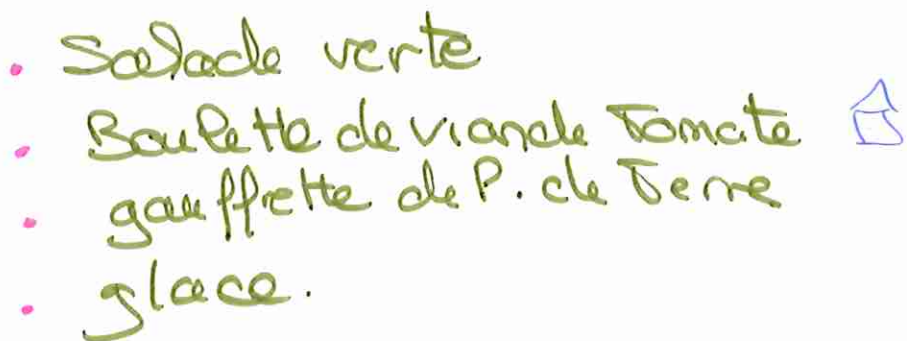 . Salade verte
. Boulette de viande Tomate
. gauffrette de P. de Terre
. glace.